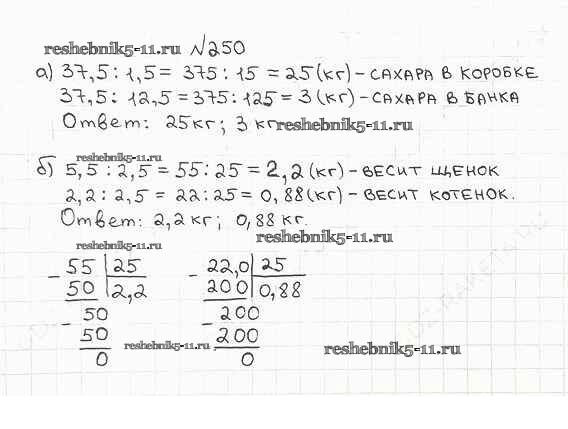 reshebnik5-11.ru №250
а) 37,5 : 1,5 = 375 : 15 = 25 (кг) - САХАРА В КОРОБКЕ
37,5 : 12,5 = 375 : 125 = 3 (кг) - САХАРА В БАНКА
Ответ: 25 кг; 3 кг reshebnik5-11.ru
reshebnik5-11.ru
б) 5,5 : 2,5 = 55 : 25 = 2,2 (кг) - ВЕСИТ ЩЕНОК
2,2 : 2,5 = 22 : 25 = 0,88 (кг) - ВЕСИТ КОТЕНОК.
Ответ: 2,2 кг; 0,88 кг.
reshebnik5-11.ru
reshebnik5-11.ru
- 55 | 25 - 22,0 | 25
50 | 2,2 200 | 0,88
- 50 - 200
50 200
0 0
reshebnik5-11.ru reshebnik5-11.ru